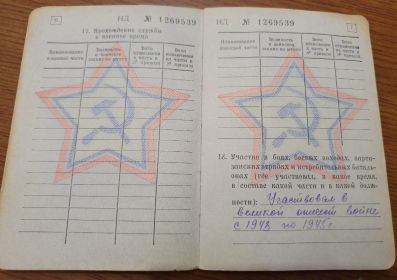 6
НД № 1269539
17. Прохождение службы
в военное время
Наименование воинской части
Должность и воинское звание по штату
Дата зачисления в часть и № приказа
Дата исключения из части и № приказа
НД № 1269539
7
Наименование воинской части
Должность и воинское звание по штату
Дата зачисления в часть и № приказа
Дата исключения из части и № приказа
18. Участие в боях, боевых походах, парти-
занских отрядах и истребительных баталь-
онах (где участвовал, в какое время,
в составе какой части и в какой долж-
ности): Участвовал в
великой отечест войне
с 1943 по 1945 г